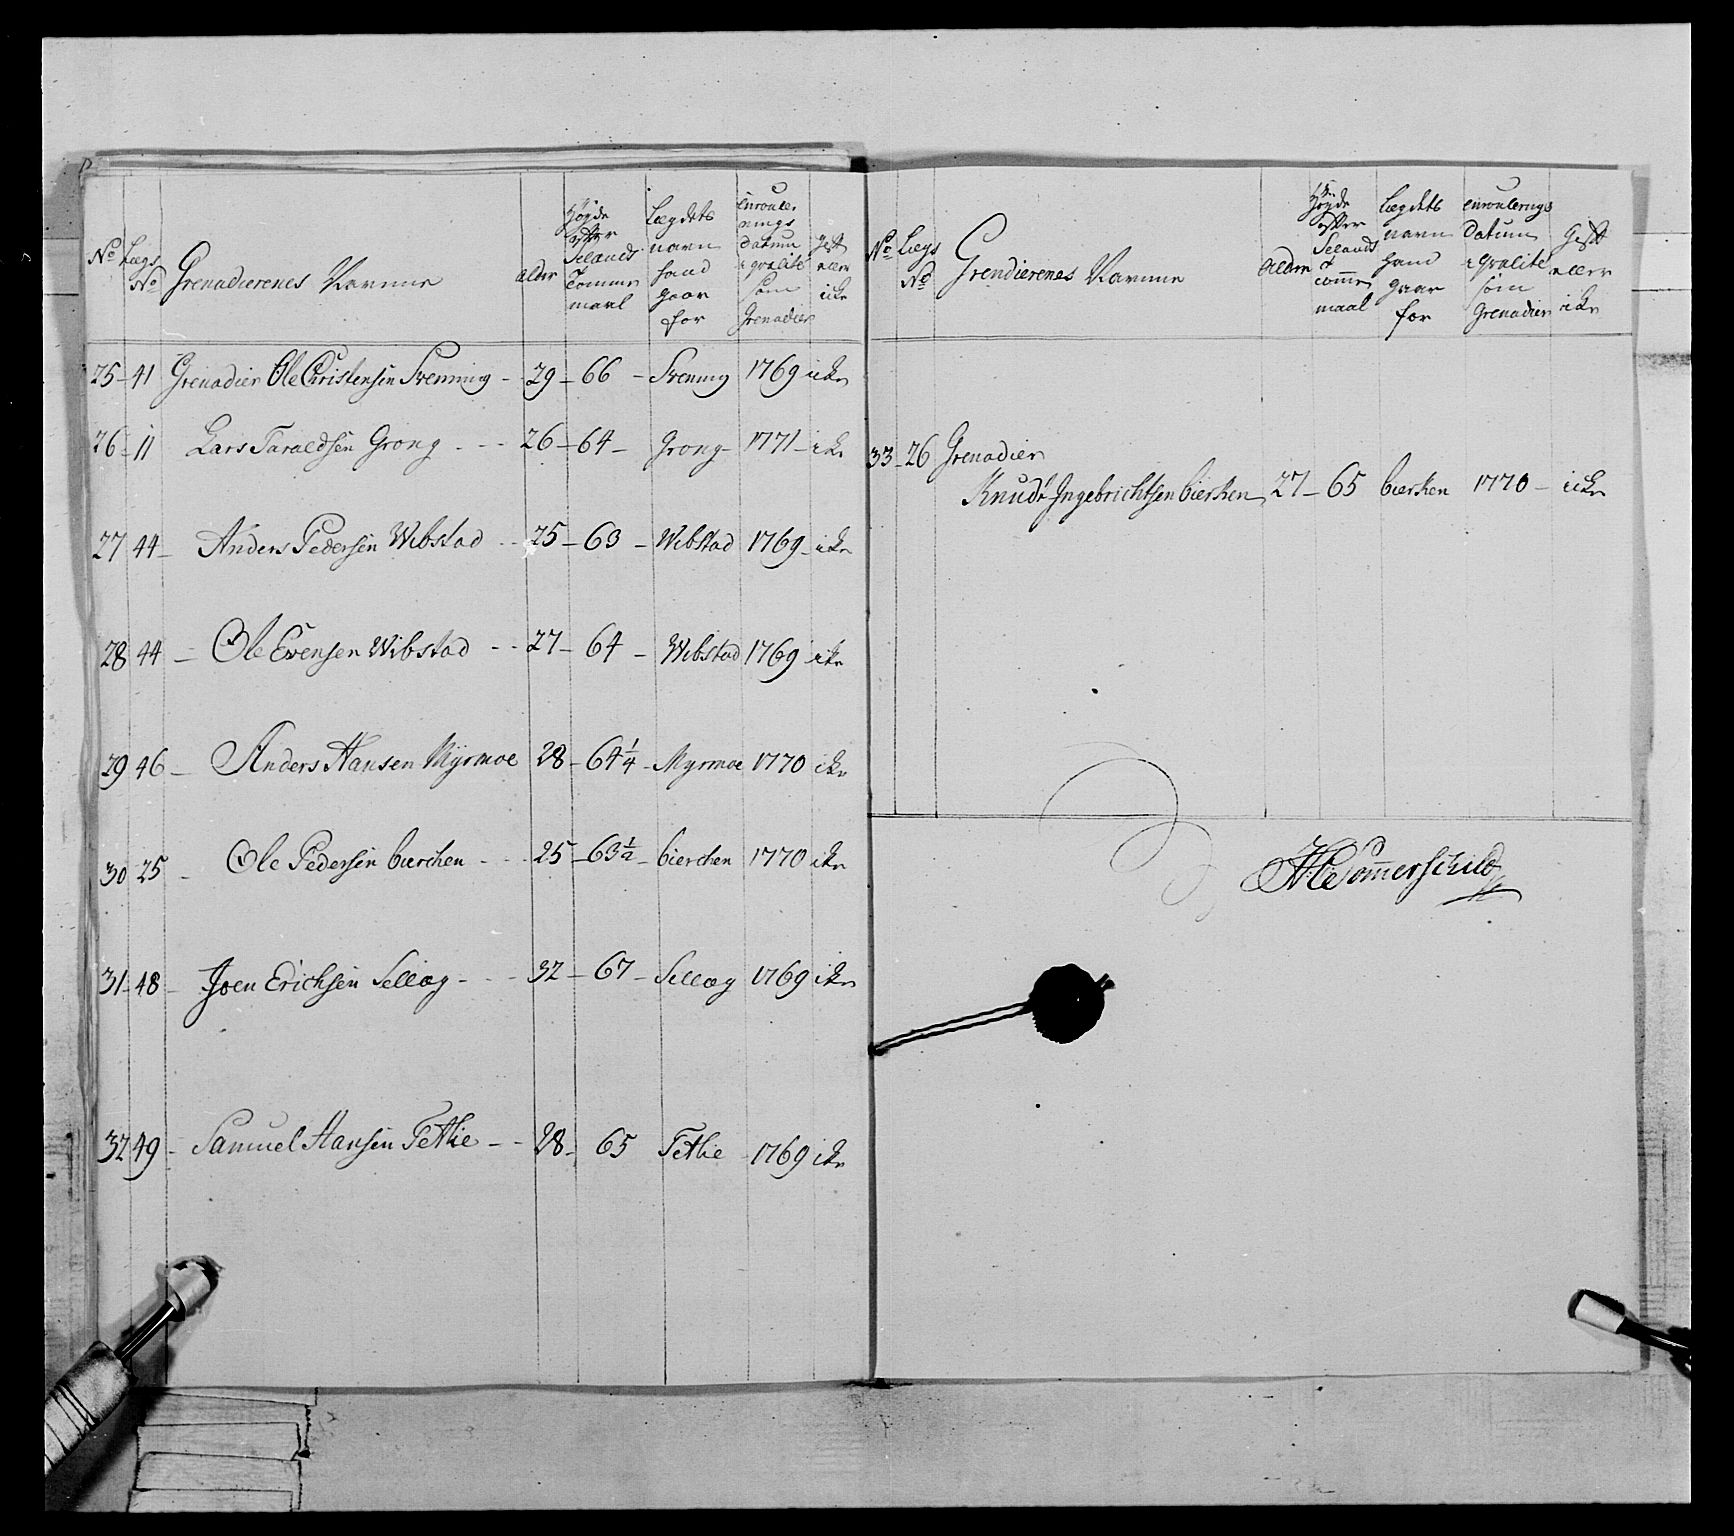 No Lægs No Grenadierenes Navnne alder Høyde efter Selands Tomme maal Lægdets navn hand gaar for Enroulerings datum i qvalité som Grenadier gift eller icke
25 - 41 Grenadier Ole Christensen Svenning - 29 - 66 - Svening 1769 icke
26 - 11 Lars Taraldsen Grong - - - 26 - 64 - Grong - 1771 - icke
27 44 - Anders Pedersen Wibstad - - 25 - 63 - Wibstad 1769 - icke
28 44 - Ole Evensen Wibstad - - 27 - 64 - Wibstad 1769 icke
29 46 - Anders Hansen Myrmoe 28 - 64 1/4 - Myrmoe 1770 icke
30 - 25 - Ole Pedersen bierchen - - - 25 - 63 1/2 - bierchen 1770 icke
31 - 48 - Joen Erichsen Sellæg - - - 32 - 67 - Sellæg 1769 icke
32 49 - Samuel Hansen Tetlie - - 28 - 65 Tetlie 1769 icke
No Lægs No Grendierenes Navnne alder Høyde efter Selands Tomme maal Lægdets navn hand gaar for enroulerings Datum i qvalité som Grenadier Gift eller icke
33 - 26 Grenadier
Knudt Ingebrichtsen bierken 27 - 65 bierken 1770 - icke
Sommerschild